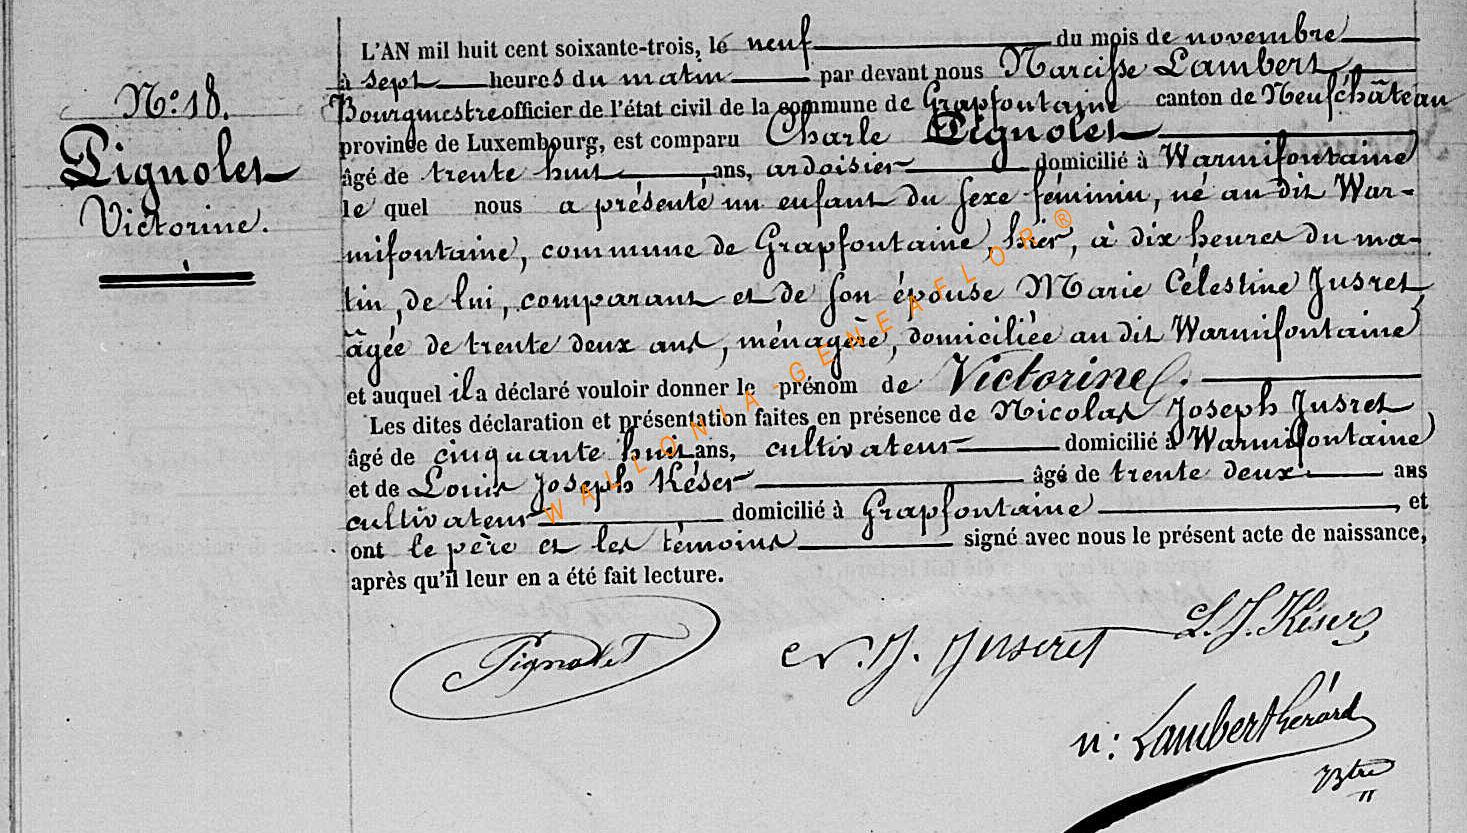 N.º 18.
Pignolet
Victorine.
L'AN mil huit cent soixante-trois, le neuf du mois de novembre
à sept heures du matin par devant nous Narcisse Lambert,
Bourgmestre officier de l'état civil de la commune de Grapfontaine canton de Neufchâteau
province de Luxembourg, est comparu Charle Pignolet
âgé de trente huit ans, ardoisier domicilié à Warmifontaine
le quel nous a présenté un enfant du sexe féminin, né au dit War-
mifontaine, commune de Grapfontaine, hier, à dix heures du ma-
tin, de lui, comparant et de son épouse Marie Célestine Jusret,
âgée de trente deux ans, ménagère, domiciliée au dit Warmifontaine
et auquel il a déclaré vouloir donner le prénom de Victorine.
Les dites déclaration et présentation faites en présence de Nicolas Joseph Jusret,
âgé de cinquante huit ans, cultivateur domicilié à Warmifontaine
et de Louis Joseph Késer âgé de trente deux ans
cultivateur domicilié à Grapfontaine, et
ont le père et les témoins signé avec nous le présent acte de naissance,
après qu'il leur en a été fait lecture.
WALLONIA-GENEAFLOR®
Pignolet
N. J. Juseret
L. J. Késer
n: Lambert Gérard